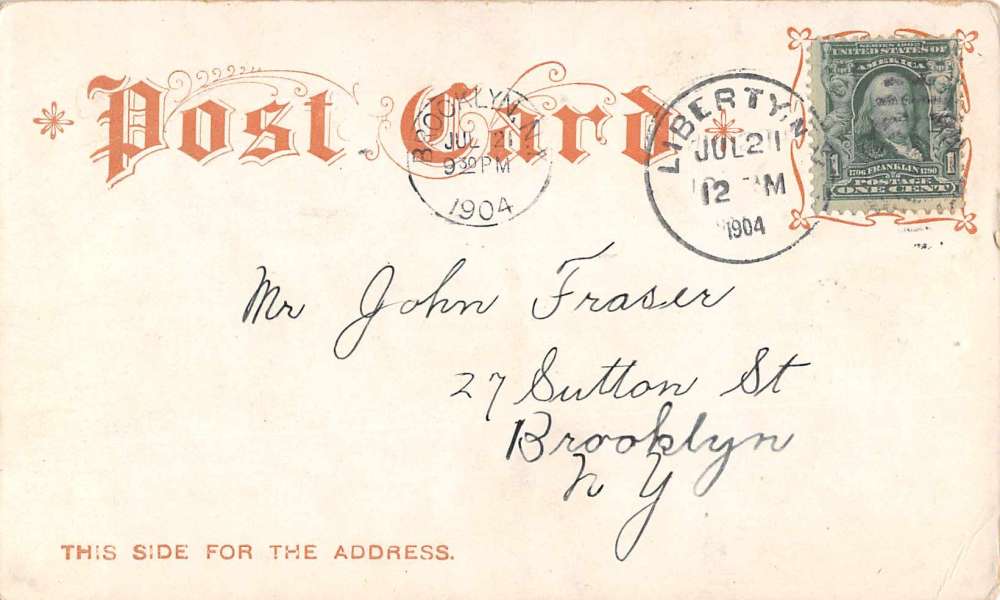 Post Card
BROOKLYN, N.Y.
JUL 21
9 30 PM
1904
LIBERTY, N.
JUL 21
12 M
1904
SERIES 1902
UNITED STATES OF
AMERICA
1706 FRANKLIN 1790
POSTAGE
1 ONE CENT 1
Mr John Fraser
27 Sutton St
Brooklyn
N Y
THIS SIDE FOR THE ADDRESS.